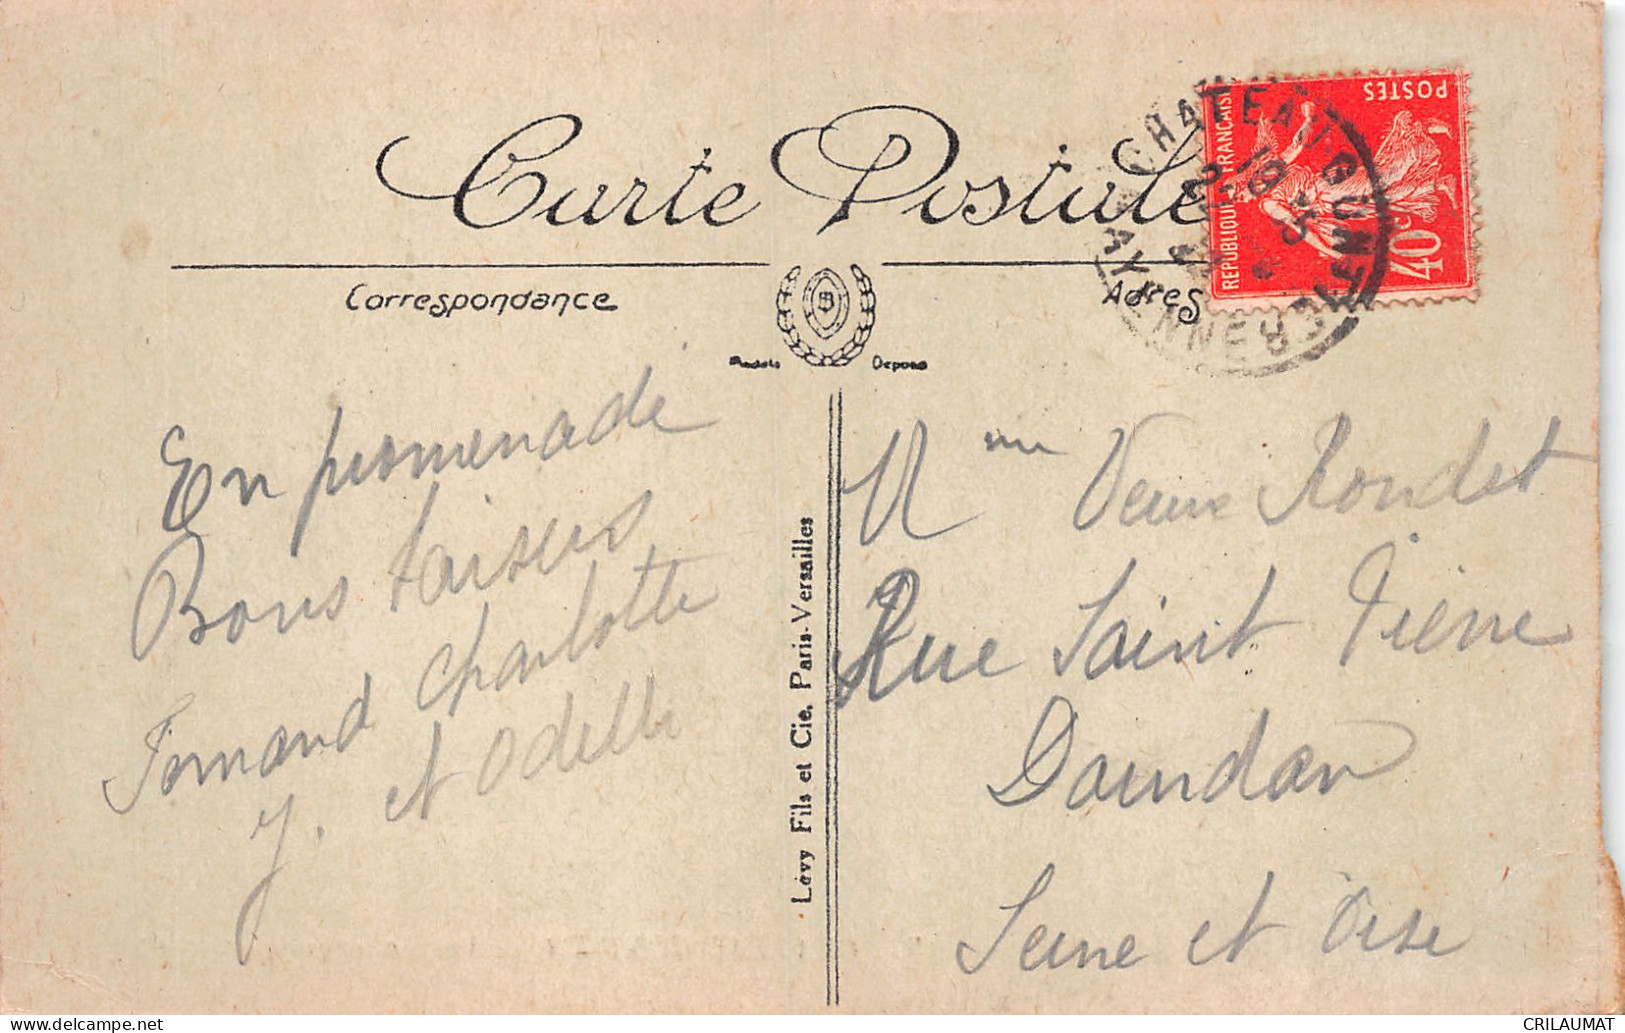 Carte Postale
POSTES
REPUBLIQUE FRANÇAISE
40c
CHATEAU-GONTIER
MAYENNE
Correspondance
Adres
Modèle Déposé
En promenade
Bons baisers
Fernand Charlotte
J. et Odette
Lévy Fils et Cie, Paris-Versailles
Mme Veuve Rondet
Rue Saint Pierre
Dourdan
Seine et Oise
CRILAUMAT
delcampe.net